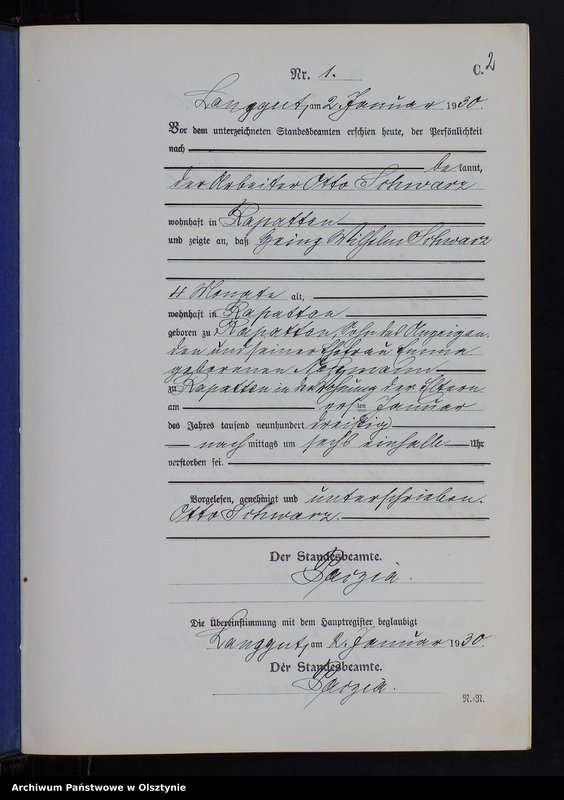 C. 2
Nr. 1.
Langgut, am 2 Januar 1930.
Vor dem unterzeichneten Standesbeamten erschien heute, der Persönlichkeit
nach
bekannt,
der Arbeiter Otto Schwarz
wohnhaft in Rapatten
und zeigte an, daß Heinz Wilhelm Schwarz
4 Monate alt,
wohnhaft in Rapatten
geboren zu Rapatten, Sohn des Anzeigen-
den und seiner Ehefrau Emma
geborenen
zu Rapatten in der Wohnung der Eltern
am ersten Januar
des Jahres tausend neunhundert dreißig
nachmittags um sechs einhalb Uhr
verstorben sei.
Vorgelesen, genehmigt und unterschrieben.
Otto Schwarz
Der Standesbeamte.
Die Übereinstimmung mit dem Hauptregister beglaubigt
Langgut, am 2. Januar 1930.
Der Standesbeamte.
R.-R.
Archiwum Państwowe w Olsztynie